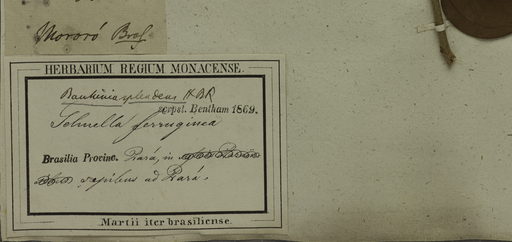 Mororó Bras.
HERBARIUM REGIUM MONACENSE.
Bauhinia splendens HBK
scrpst. Bentham 1869.
Schnella ferruginea
Brasilia Provinc. Pará, in
ripibus ad Pará.
Martii iter brasiliense.